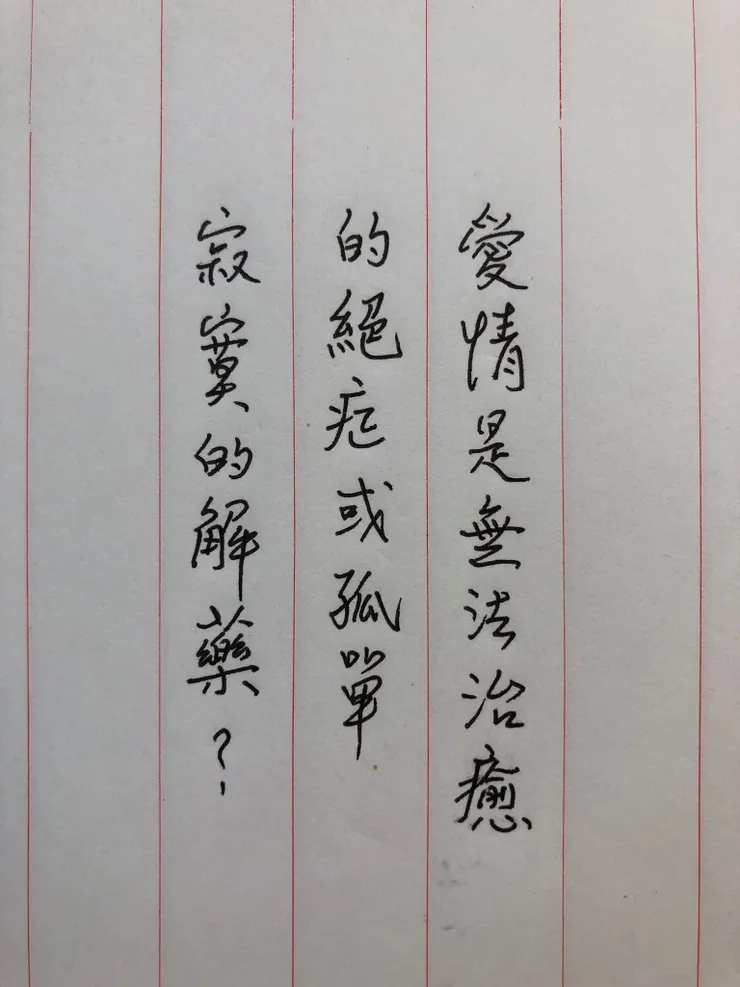 愛情是無法治癒
的絕症或孤單
寂寞的解藥？